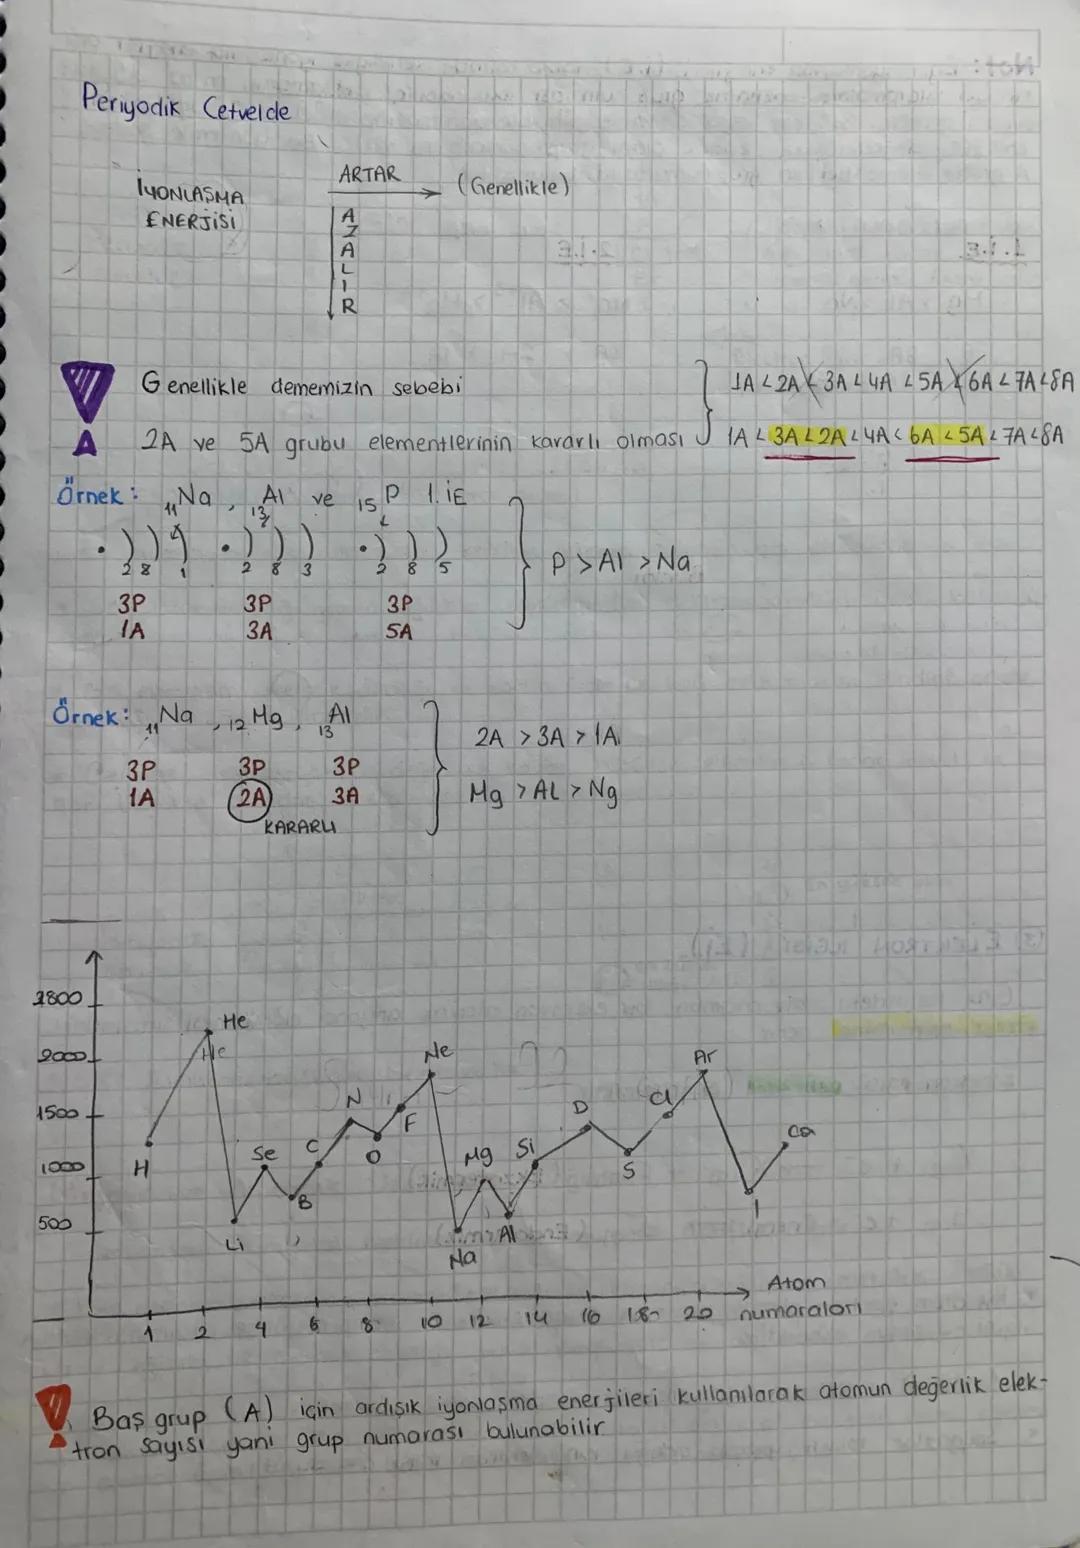 Periyodik Cetvelde
İYONLAŞMA ENERJİSİ
ARTAR (Genellikle)
AZALIR
Genellikle dememizin sebebi
2A ve 5A grubu elementlerinin kararlı olması
1A < 2A < 3A < 4A < 5A < 6A < 7A < 8A
1A < 3A < 2A < 4A < 6A < 5A < 7A < 8A
Örnek: 11Na, 13Al ve 15P 1. İE
2 8 1 2 8 3 2 8 5
P > Al > Na
3P 3P 3P
1A 3A 5A
Örnek: 11Na, 12Mg, 13Al
3P 3P 3P
1A 2A 3A
KARARLI
2A > 3A > 1A
Mg > AL > Ng
2000
1500
1000
500
He
He
Ne
Ar
N
F
D
Cl
Ca
H
Se
C
O
Mg
Si
S
B
Li
Al
Na
1 2 4 6 8 10 12 14 16 18 20
Atom numaraları
Baş grup (A) için ardışık iyonlaşma enerjileri kullanılarak atomun değerlik elek-
tron sayısı yani grup numarası bulunabilir